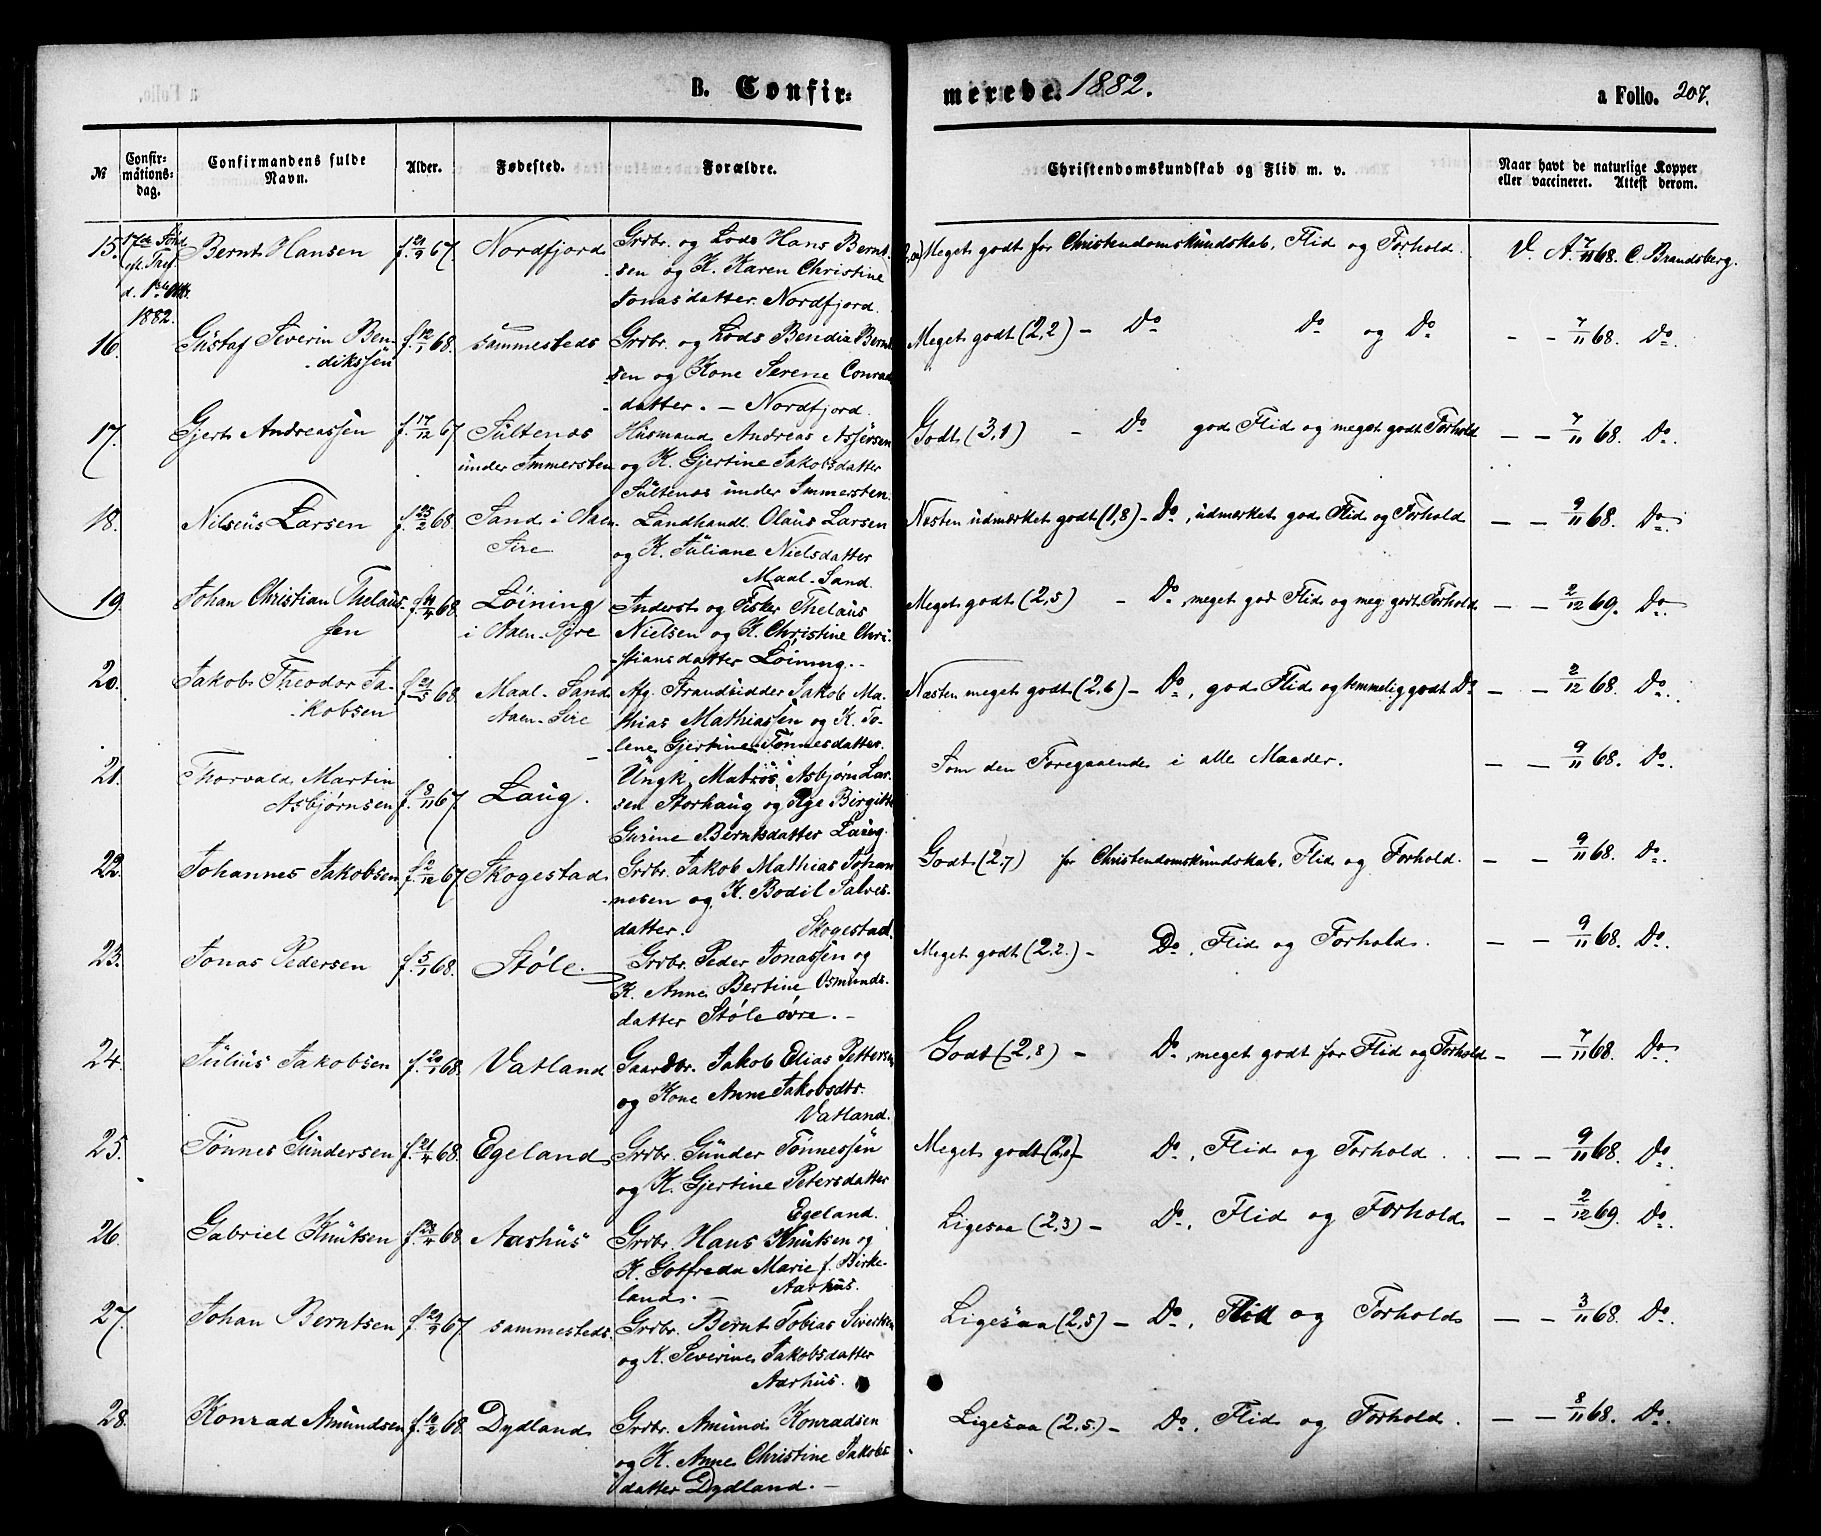 B. Confir-
merede. 1882.
a Follo. 207.
№
Confir-
mations-
dag.
Confirmandens fulde
Navn.
Alder.
Fødested.
Forældre.
Christendomskundskab og Flid m. v.
Naar havt de naturlige Kopper
eller vaccineret. Attest derom.
15. 17de Sønd. Bernt Hansen f. 21/9 67 Nordfjord Grbr. og Lods Hans Bernt- Meget godt for Christendomskundskab, Flid og Forhold. V. A. 7/11 68. C. Brandsberg.
eft. Tref. sen og K. Karen Christine
d. 1ste Oktb. Jonasdatter. Nordfjord.
1882.
16. Gustaf Severin Ben- f. 12/1 68. sammesteds Grbr. og Lods Bendix Bernt- Meget godt (2,2) - Do Do og Do - - 7/11 68. Do.
diksen sen og Kone Serene Conrads-
datter. - Nordfjord.
17. Gjert Andreassen f. 17/12 67 Sultenos Husmand Andreas Assersen Godt (3,1) - Do god Flid og meget godt Forhold - - 7/11 68. Do.
under Immersten og K. Gjertine Jakobsdatter
Sultenos under Immersten.
18. Nilseus Larsen f. 25/2 68. Sand i Aaen- Landhandl. Olaus Larsen Næsten udmærket godt (1,8) - Do, udmærket god Flid og Forhold - - 9/11 68. Do
Sire og K. Juliane Nielsdatter
Maal-Sand.
19. Johan Christian Thelaus- f. 19/4 68. Løining Inderst og Fisker Thelaus Meget godt (2,5) - Do, meget god Flid og meg. godt Forhold - - 2/12 69. Do
sen i Aaen-Sire Nielsen og K. Christine Chri-
stiansdatter Løining.
20. Jakob Theodor Ja- f. 21/5 68. Maal-Sand Afg. Strandsidder Jakob Ma- Næsten meget godt (2,6) - Do, god Flid og temmelig godt Do - - 2/12 68. Do.
kobsen Aaen-Sire thias Mathiassen og K. To-
lene Gjertine Tønnesdatter.
21. Thorvald Martin f. 8/11 67. Laug. Ungk. Matros Asbjørn Lar- Som den Foregaaende i alle Maader. - - 9/11 68. Do.
Asbjørnsen sen Storhaug og Pge Birgitte
Gurine Berntsdatter Laug.
22. Johannes Jakobsen f. 2/12 67. Skogestad Grbr. Jakob Mathias Johan- Godt (2,7) for Christendomskundskab, Flid og Forhold. - - 9/11 68. Do.
nesen og K. Bodil Salves-
datter. Skogestad.
23. Jonas Pedersen f. 5/1 68. Støle. Grbr. Peder Jonassen og Meget godt (2,2.) - Do, Flid og Forhold. - - 9/11 68. Do.
K. Anne Bertine Osmunds-
datter Støle øvre. -
24. Julius Jakobsen f. 20/1 68. Vatland Gaardbr. Jakob Elias Pettersen Godt (2,8) - Do, meget godt for Flid og Forhold - - 7/11 68. Do.
og Kone Anne Jakobsdtr.
Vatland.
25. Tønnes Gundersen f. 21/4 68. Egeland Grbr. Gunder Tønnessen Meget godt (2,0) - Do, Flid og Forhold. - - 9/11 68. Do.
og K. Gjertine Petersdatter
Egeland.
26. Gabriel Knutsen f. 23/4 68. Aarhus Grbr. Hans Knutsen og Ligesaa (2,3) - Do, Flid og Forhold - - 2/12 69. Do.
K. Gotfreda Marie f. Birke-
land. - Aarhus.
27. Johan Berntsen f. 21/9 67. sammesteds. Grbr. Bernt Tobias Sivertsen Ligesaa (2,5) - Do, Flid og Forhold - - 3/11 68. Do.
og K. Severine Jakobsdatter
Aarhus.
28. Konrad Amundsen f. 14/2 68. Dydland Grbr. Amund Konradsen Ligesaa (2,5.) - Do, Flid og Forhold. - - 8/11 68. Do.
og K. Anne Christine Jakobs-
datter Dydland. -